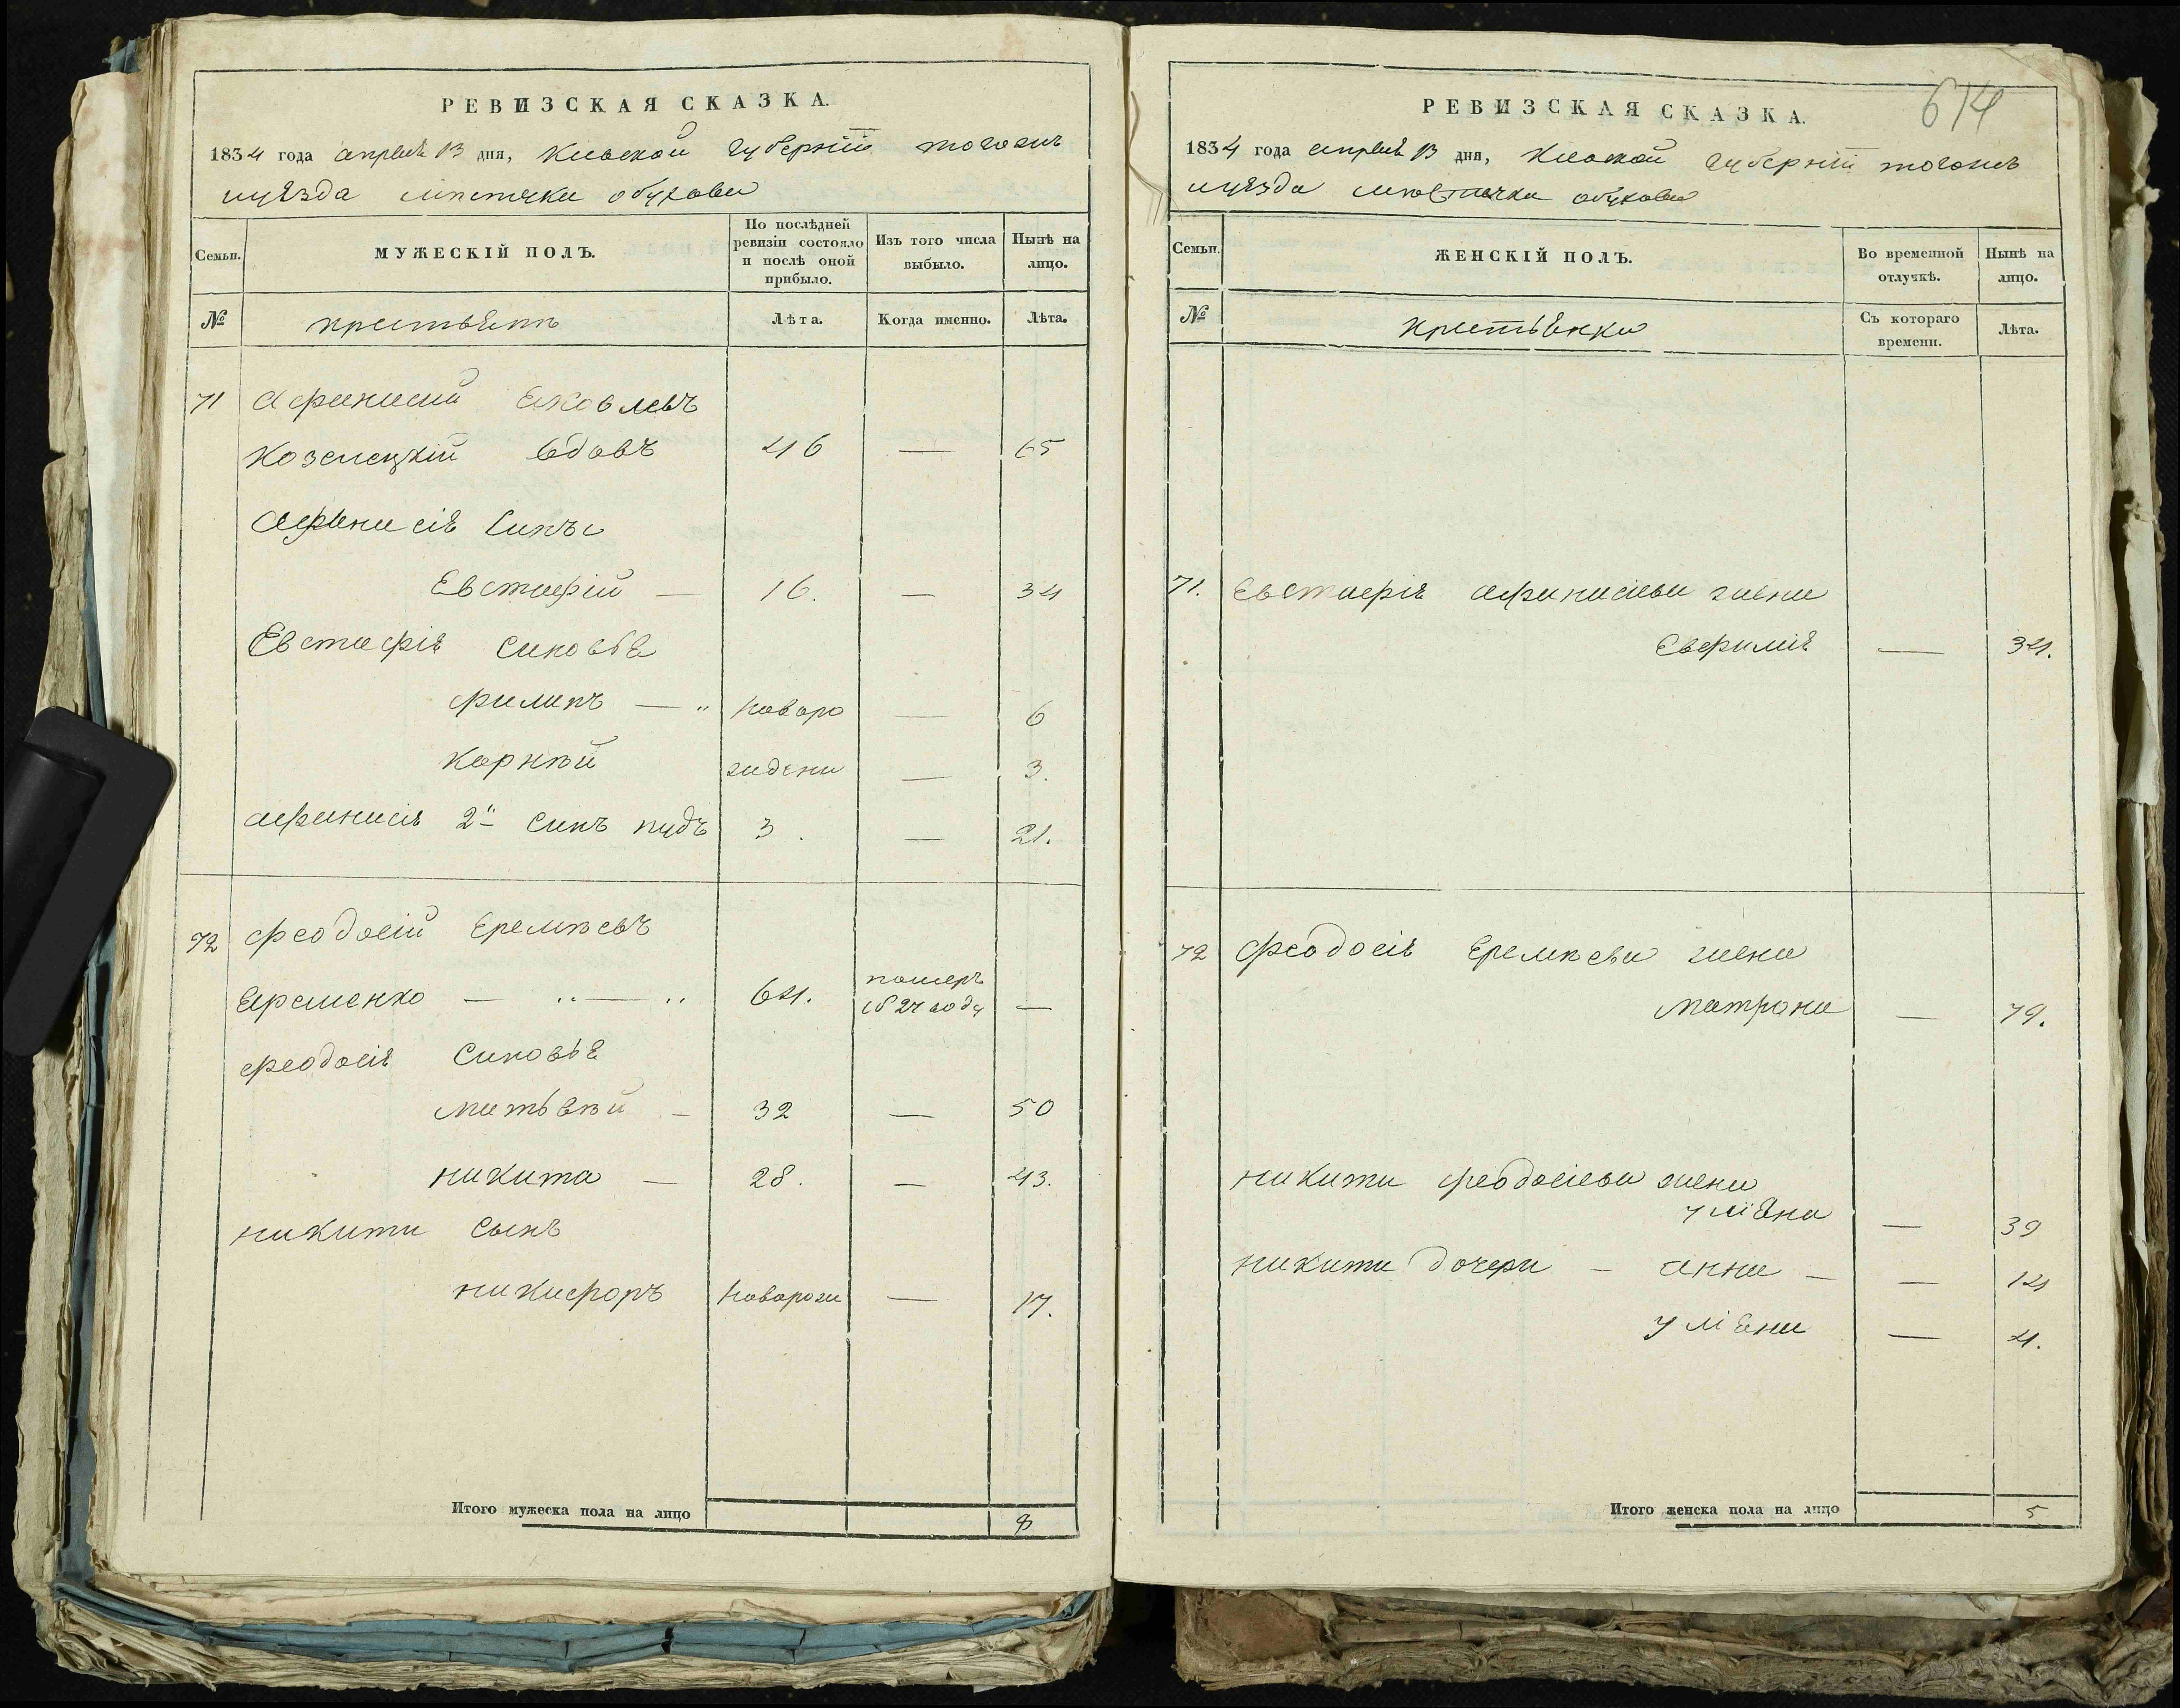 РЕВИЗСКАЯ СКАЗКА.
1834 года апреля 13 дня, Киевской губерніи тогожъ
уѣзда мѣстечка обухова
Семьи.
МУЖЕСКІЙ ПОЛЪ.
По послѣдней ревизіи состояло и послѣ оной прибыло.
Изъ того числа выбыло.
Нынѣ на лицо.
№
крестьянъ
Лѣта.
Когда именно.
Лѣта.
71 Афанасий Яковлевъ
Козелецкій вдовъ 46 — 65
Афанасія сыны
Евстафій — 16. — 34
Евстафія синовья
филипъ — " новоро — 6
Корнѣй ждени — 3.
афанасія 2й синъ иудъ 3. — 21.
72 феодосій Еремѣевъ
Яременко — " — " 64. померъ 1827 году —
феодосія Синовья
матьвѣй — 32 — 50
никита — 28. — 43.
никити Сынъ
никифоръ Новорож — 17.
Итого мужеска пола на лицо 8
РЕВИЗСКАЯ СКАЗКА.
614
1834 года апреля 13 дня, Киевской губерніи тогожъ
уѣзда местечка обухова
Семьи.
ЖЕНСКІЙ ПОЛЪ.
Во временной отлучкѣ.
Нынѣ на лицо.
№
крестьянки
Съ котораго времени.
Лѣта.
71. Евстафія афанасіева жена
Евфимія — 34.
72 Феодосія Еремѣева жена
матрона — 79.
никити феодосіева жена
уліяна — 39
никити дочери — анна — — 14
уліяна — 4.
Итого женска пола на лицо 5